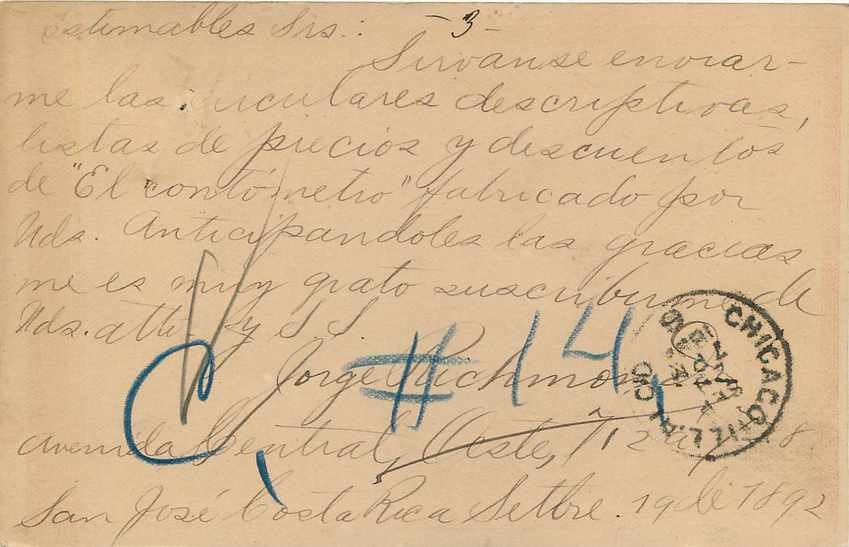 Estimables Srs.: -3-
Sirvanse enviar-
me las circulares descriptivas,
listas de precios y descuentos
de "El contómetro" fabricado por
Uds. Anticipandoles las gracias
me es muy grato suscribirme de
Uds. atto y S S.
Jorge Richmond
# 14,
C,
CHICAGO, ILL.
REC'D
avenida Central, Oeste, 712
San José Costa Rica Setbre. 19 de 1892